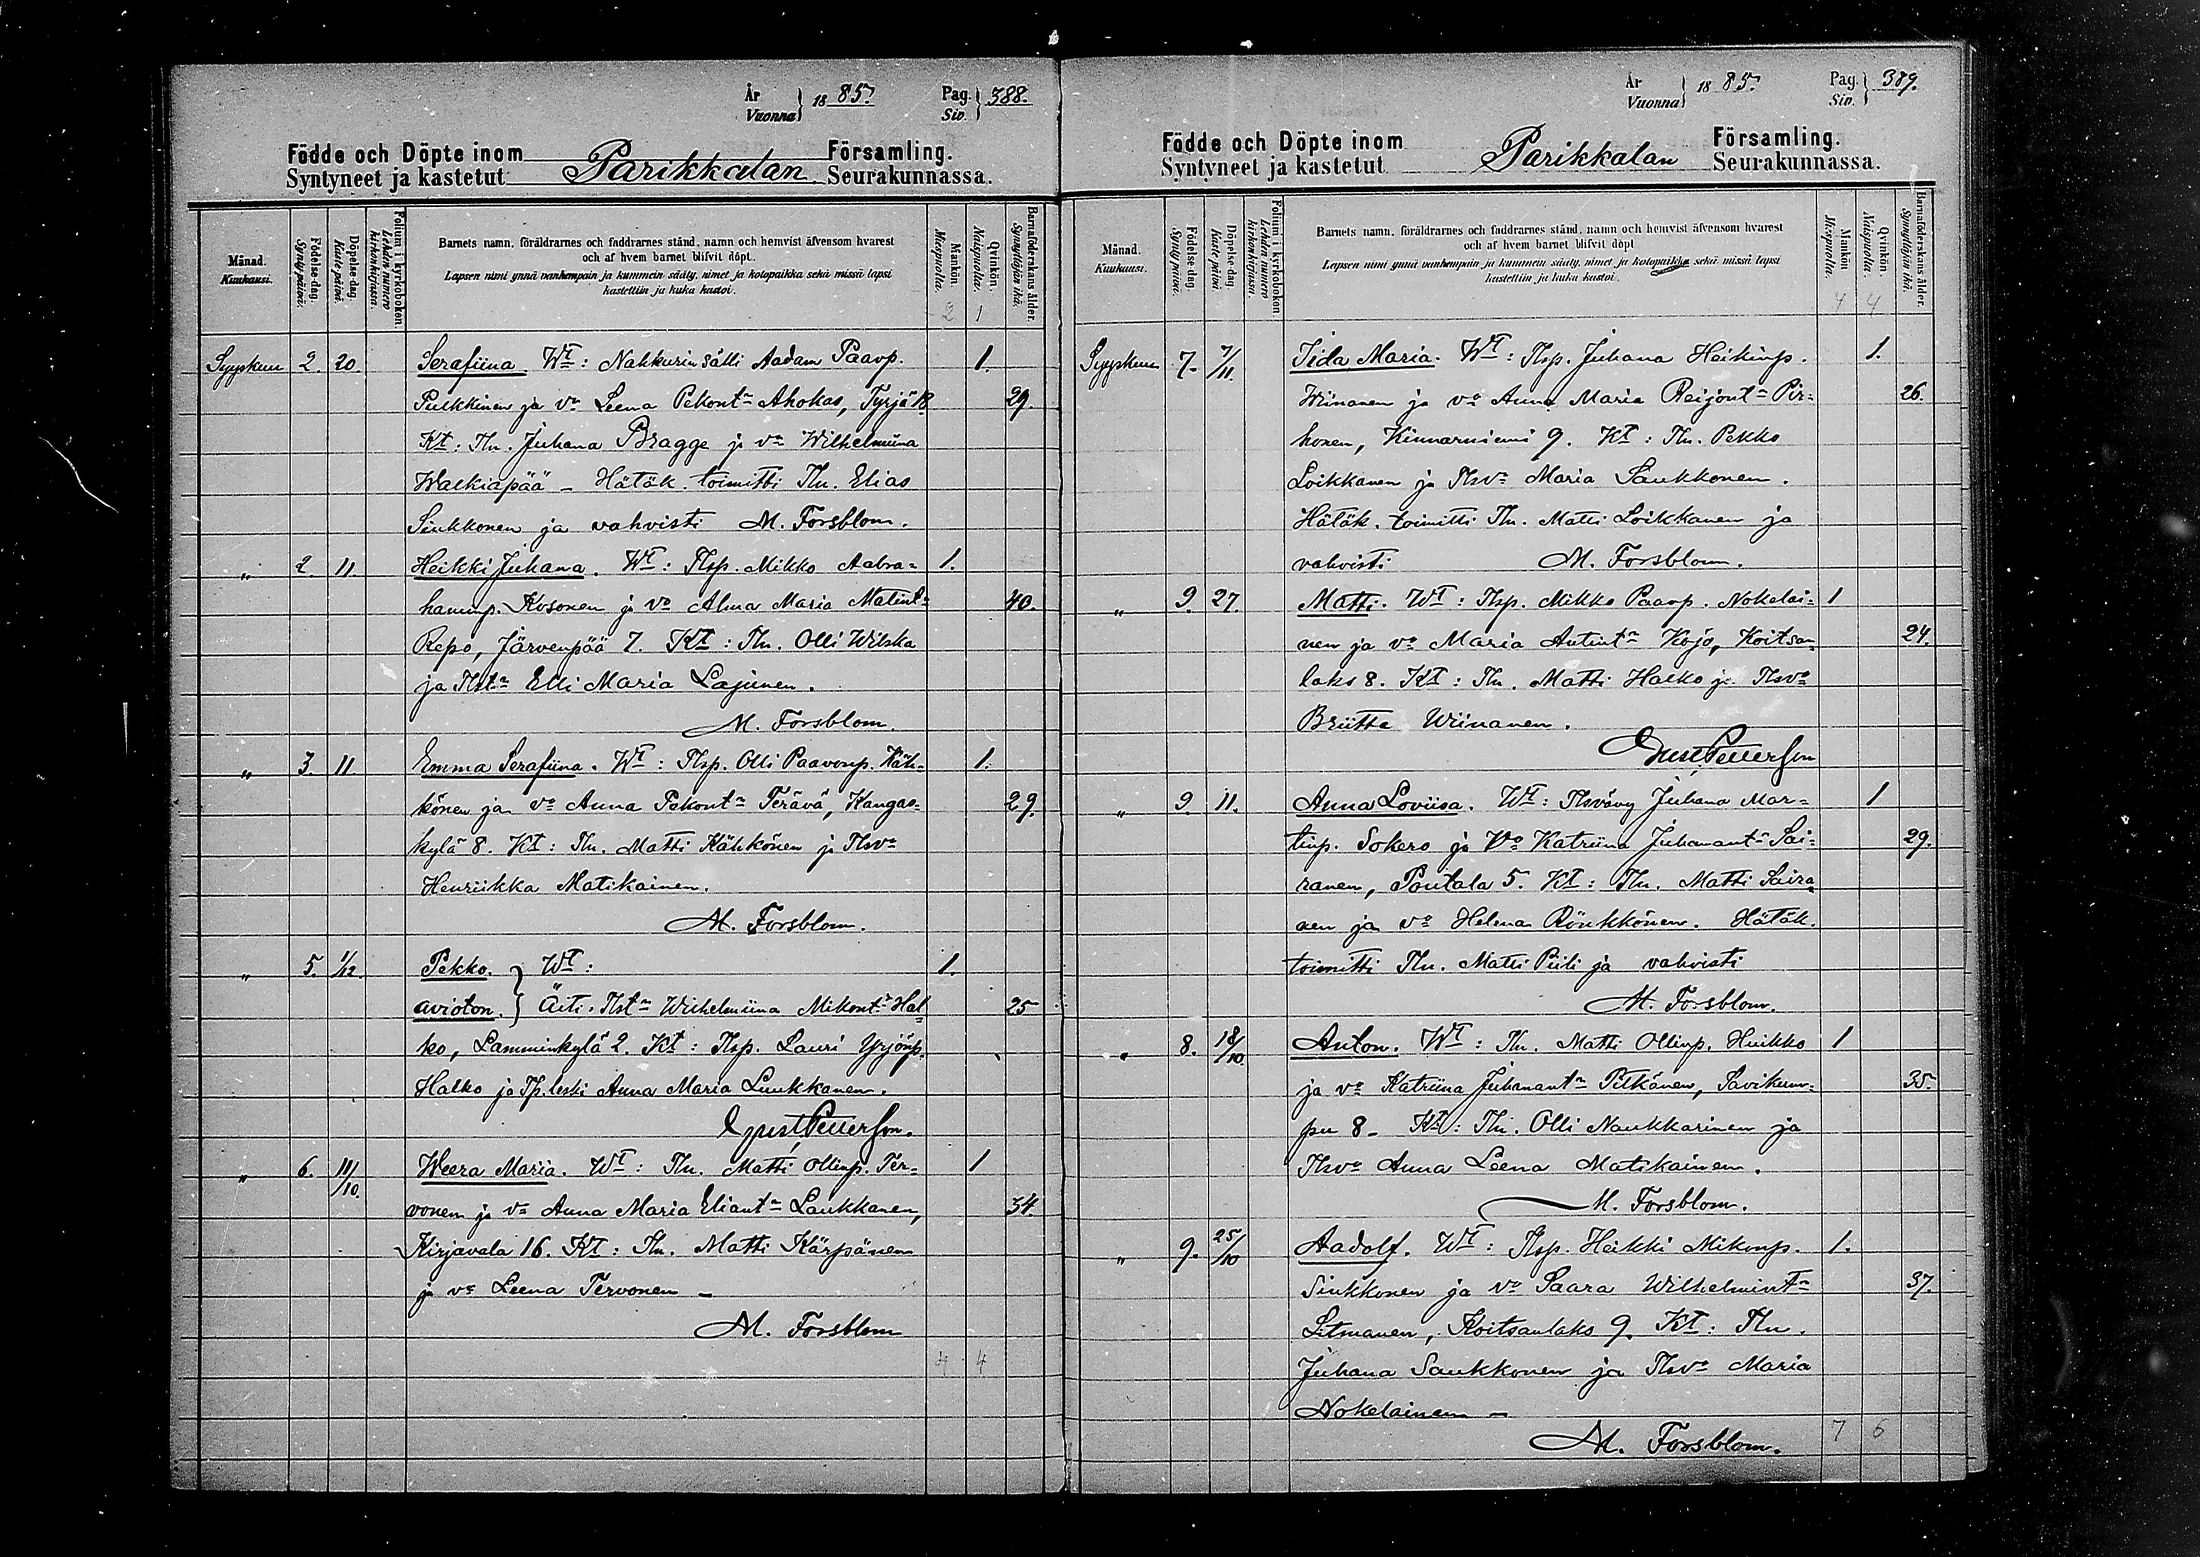 År Vuonna } 1885. Pag. Siv. } 388.
Födde och Döpte inom Församling.
Syntyneet ja kastetut Parikkalan Seurakunnassa.
Månad. Kuukausi.
Födelse-dag. Synty päivä.
Döpelse-dag. Kaste päivä.
Folium i kyrkoboken. Lehden numero kirkonkirjassa.
Barnets namn, föräldrarnes och faddrarnes stånd, namn och hemvist äfvensom hvarest
och af hvem barnet blifvit döpt.
Lapsen nimi ynnä vanhempain ja kummein sääty, nimet ja kotopaikka sekä missä lapsi
kastettiin ja kuka kastoi.
Mankön. Miespuolia.
Qvinkön. Naispuolia.
Barnaföderskans ålder. Synnyttäjän ikä.
2 1
Syyskuu 2. 20. Serafiina. Wt: Nahkurinsälli Aadam Paavp. 1.
Pulkkinen ja vo Leena Pekont. Ahokas, Tyrjä 18 29.
Kt: Tln. Juhana Bragge ja vo Wilhelmiina
Walkiapää – Hätäk. toimitti Tln. Elias
Sinkkonen ja vahvisti M. Forsblom.
" 2. 11. Heikki Juhana. Wt: Tlsp. Mikko Aabra= 1.
hamnp. Kosonen ja vo Alma Maria Matint. 40.
Repo, Järvenpää 7. Kt: Tln. Olli Wilska
ja Tlst. Elli Maria Lajunen.
M. Forsblom.
" 3. 11. Emma Serafiina. Wt: Tlsp. Olli Paavonp. Käh= 1.
könen ja vo Anna Pekont. Terävä, Kangas= 29.
kylä 8. Kt: Tln. Matti Kähkönen ja Tlsvo
Henriikka Matikainen.
M. Forsblom.
" 5. 1/12. Pekko. } Wt: 1.
avioton. } Äiti. Tlst. Wilhelmiina Mikont. Hal= 25
ko, Lamminkylä 2. Kt: Tlsp. Lauri Yrjönp.
Halko ja Tp. leski Anna Maria Luukkanen.
Gust. Petterson.
" 6. 11/10. Weera Maria. Wt: Tln. Matti Ollinp. Ter= 1
vonen ja vo Anna Maria Eliant. Laukkanen, 34.
Kirjavala 16. Kt: Tln. Matti Kärpänen
ja vo Leena Tervonen –
M. Forsblom
4 4
År Vuonna } 1885. Pag. Siv. } 389.
Födde och Döpte inom Församling.
Syntyneet ja kastetut Parikkalan Seurakunnassa.
Månad. Kuukausi.
Födelse-dag. Synty päivä.
Döpelse-dag. Kaste päivä.
Folium i kyrkoboken Lehden numero kirkonkirjassa.
Barnets namn, föräldrarnes och faddrarnes stånd, namn och hemvist äfvensom hvarest
och af hvem barnet blifvit döpt
Lapsen nimi ynnä vanhempain ja kummein sääty, nimet ja kotopaikka sekä missä lapsi
kastettiin ja kuka kastoi.
Mankön Miespuolia.
Qvinkön. Naispuolia.
Barnaföderskans ålder. Synnyttäjän ikä.
4 4
Syyskuu 7. 7/11. Iida Maria. Wt: Tlsp. Juhana Heikinp. 1.
Wiinanen ja vo Anna Maria Reijont. Pir= 26.
honen, Kinnarniemi 9. Kt: Tln. Pekko
Loikkanen ja Tlsvo Maria Saukkonen.
Hätäk. toimitti Tln. Matti Loikkanen ja
vahvisti M. Forsblom.
" 9. 27. Matti. Wt: Tlsp. Mikko Paavp. Nokelai= 1
nen ja vo Maria Antint. Kojo, Koitsan= 24.
laks 8. Kt: Tln. Matti Halko ja Tlsvo
Briitta Wiinanen.
Gust. Petterson
" 9. 11. Anna Loviisa. Wt: Tlsvävy Juhana Mar= 1
tinp. Sokero ja Vo Katriina Juhanant. Sai= 29.
ranen, Poutala 5. Kt: Tln. Matti Saira=
nen ja vo Helena Rönkkönen. Hätäk.
toimitti Tln. Matti Piili ja vahvisti
M. Forsblom.
" 8. 18/10. Anton. Wt: Tln. Matti Ollinp. Huikko 1
ja vo Katriina Juhanant. Pitkänen, Savikum= 35.
pu 8 – Kt: Tln. Olli Naukkarinen ja
Tlsvo Anna Leena Matikainen.
M. Forsblom.
" 9. 25/10 Aadolf. Wt: Tlsp. Heikki Mikonp. 1.
Sinkkonen ja vo Saara Wilhelmint. 37.
Litmanen, Koitsanlaks 9. Kt: Tln.
Juhana Saukkonen ja Tlsvo Maria
Nokelainen –
M. Forsblom.
7 6